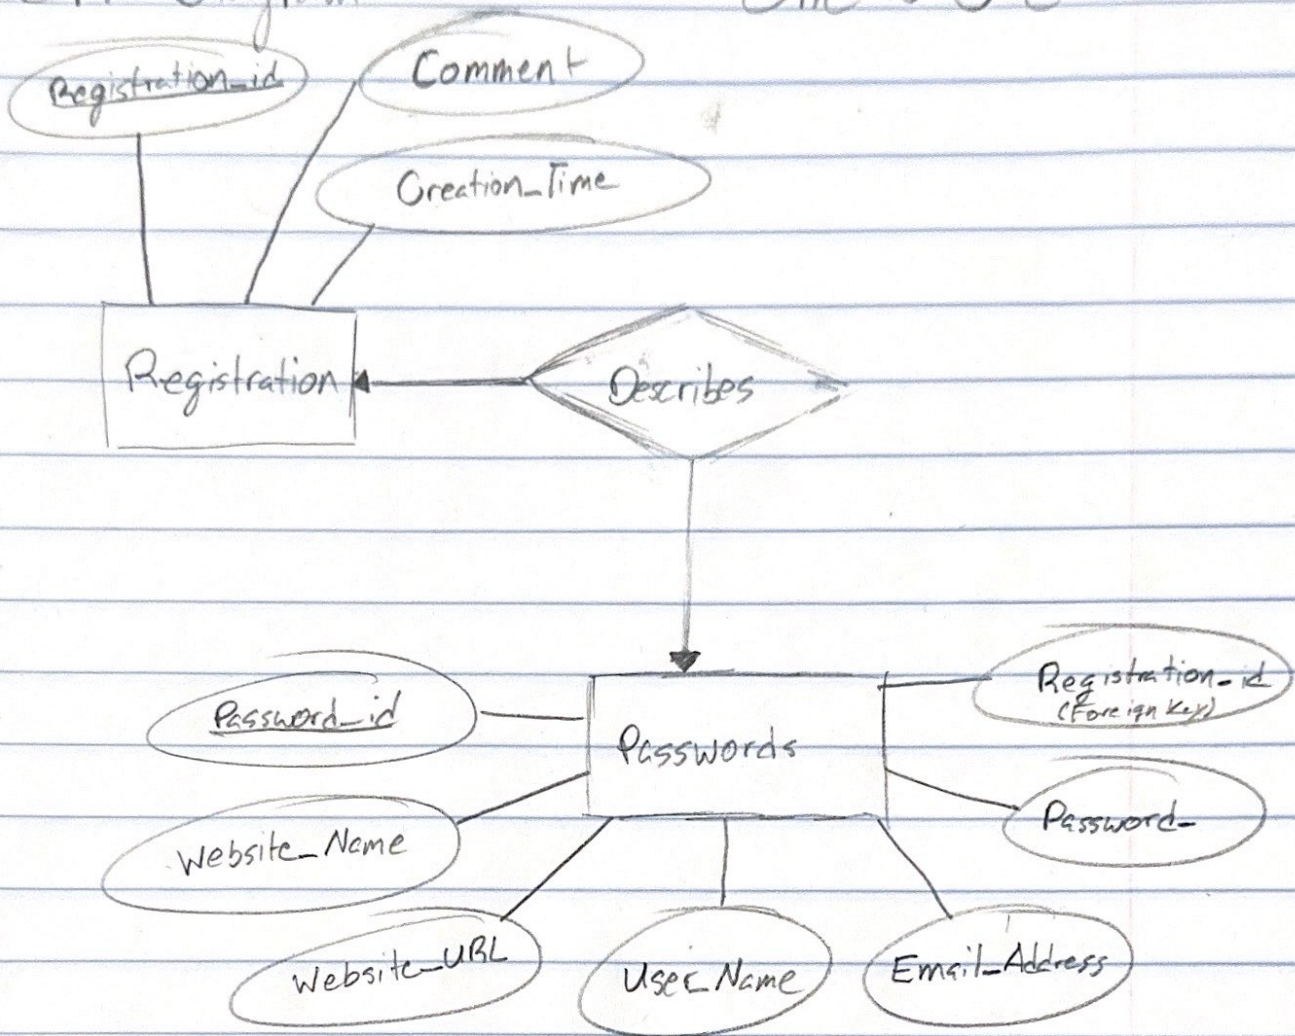 Registration_id
Comment
Creation_Time
Registration
Describes
Password_id
Passwords
Registration_id
(Foreign Key)
Website_Name
Password_
Website_URL
User_Name
Email_Address